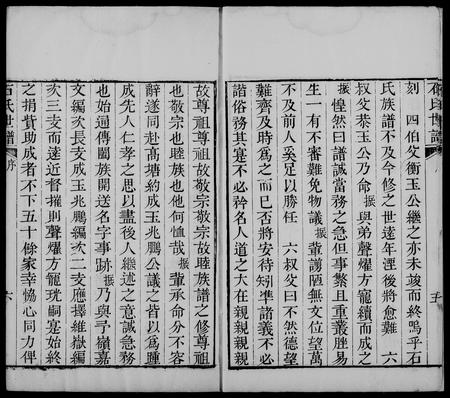 石氏世譜
刻 四伯父衡玉公繼之亦未竣而終嗚乎石
氏族譜不及今修之世遠年湮後將愈難 六
叔父恭玉公乃命振與弟聲耀方寵續而成之
振惶然曰譜誠當務之急但事繁且重叢脞易
生一有不審難免物議振輩譾陋無文位望萬
不及前人奚足以勝任 六叔父曰不然德望
難齊及時爲之而已否將安待矧準諸義不必
諧俗務其寔不必矜名人道之大在親親親親
故尊祖尊祖故敬宗敬宗故睦族譜之修尊祖
也敬宗也睦族也他何恤哉振輩承命分不容
辭遂同赴高塘約成玉兆鵬公議之皆以爲踵
成先人仁孝之思以盡後人繼述之意誠急務
也始遍傳闔族開送名字事跡振乃與弓嶺嘉
文編次長支成玉兆鵬編次二支應擇維嶽編
次三支而遠近督攉則聲耀方寵珖嗣寔始終
之捐貲助成者不下五十餘家幸恊心同力俾
石氏世譜 序 六